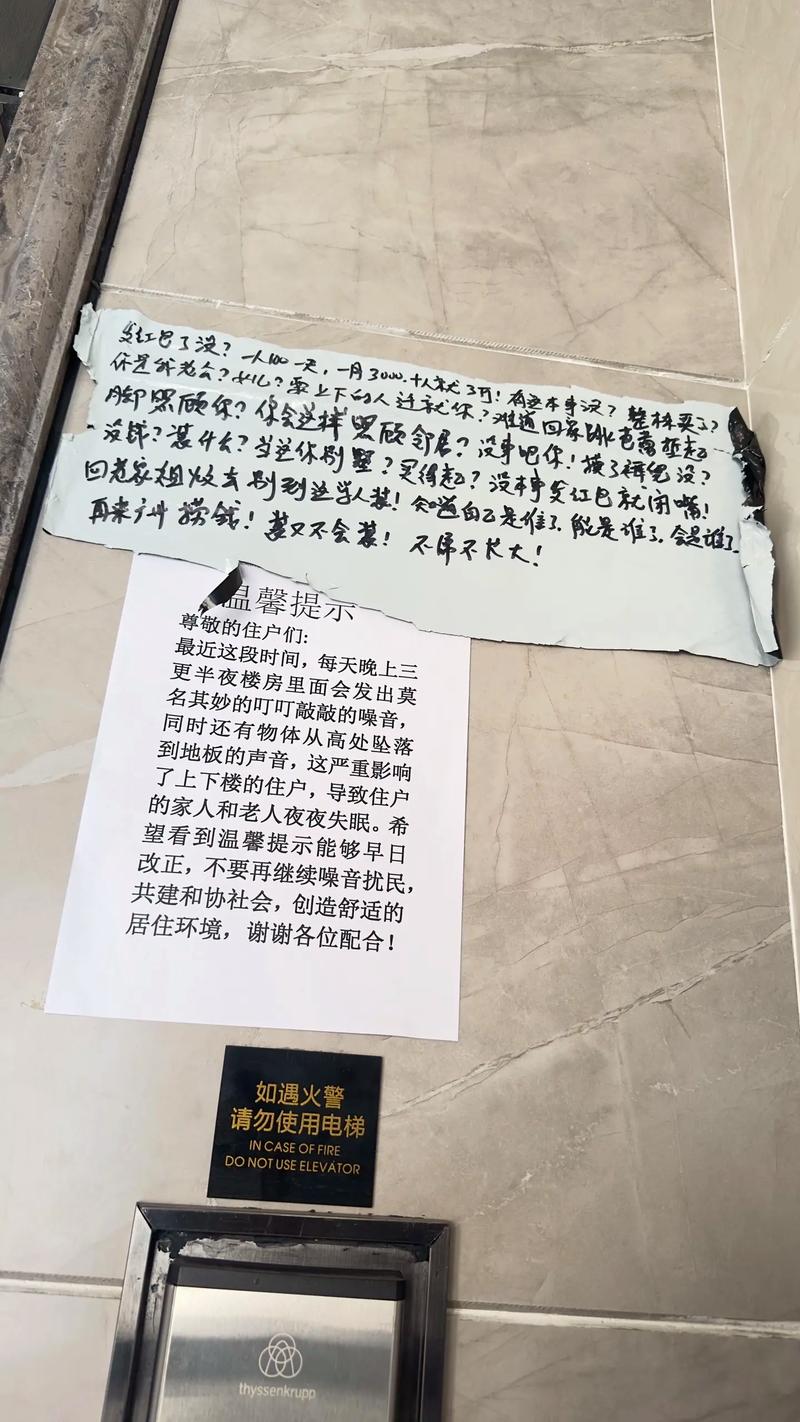 发红包了没？一人100一天，一月3000.十人就3万！有这本事没？整栋买了？
你是我老公？女儿？要上下的人迁就你？难道回家跳芭蕾垫起
脚照顾你？你会这样照顾邻居？没事吧你！摸了裤兜没？
没钱？装什么？当这你别墅？买得起？没本事发红包就闭嘴！
回老家祖坟去别到这学人装！知道自己是谁了.能是谁了.会是谁了.
再来广州捞钱！装又不会装！不停不长大！
温馨提示
尊敬的住户们：
最近这段时间，每天晚上三
更半夜楼房里面会发出莫
名其妙的叮叮敲敲的噪音，
同时还有物体从高处坠落
到地板的声音，这严重影响
了上下楼的住户，导致住户
的家人和老人夜夜失眠。希
望看到温馨提示能够早日
改正，不要再继续噪音扰民，
共建和协社会，创造舒适的
居住环境，谢谢各位配合！
如遇火警
请勿使用电梯
IN CASE OF FIRE
DO NOT USE ELEVATOR
thyssenkrupp